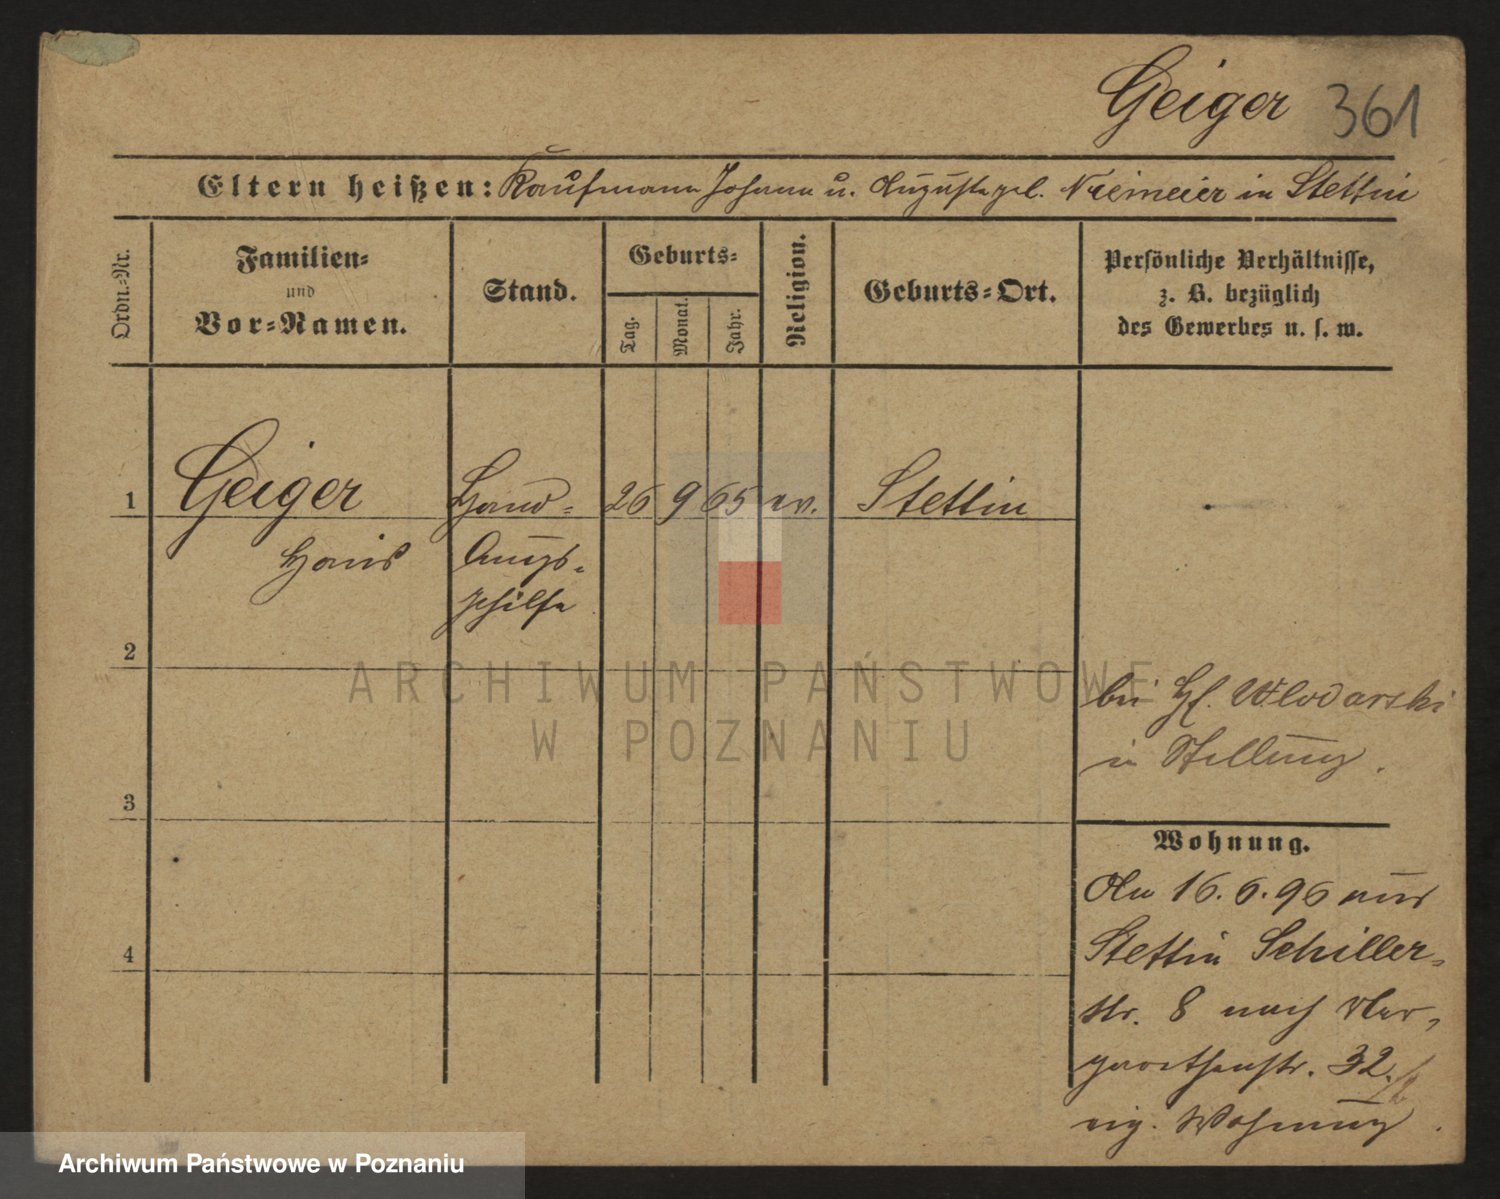 Geiger 361
Eltern heißen: Kaufmann Johann u. Auguste geb. Niemeier in Stettin
Ordn.-Nr.
Familien-
und
Vor-Namen.
Stand.
Geburts-
Tag.
Monat.
Jahr.
Religion.
Geburts-Ort.
Persönliche Verhältnisse,
z. B. bezüglich
des Gewerbes u. s. w.
1 Geiger Hand- 26 9 65 ev. Stettin
Hans
gehilfe
2
bei Hf. Wlodarski
in Stellung.
3
Wohnung.
An 16.6.96 aus
Stettin Schiller-
str. 8 nach Mar-
garethenstr. 32.
eig. Wohnung.
4
ARCHIWUM PAŃSTWOWE
W POZNANIU
Archiwum Państwowe w Poznaniu